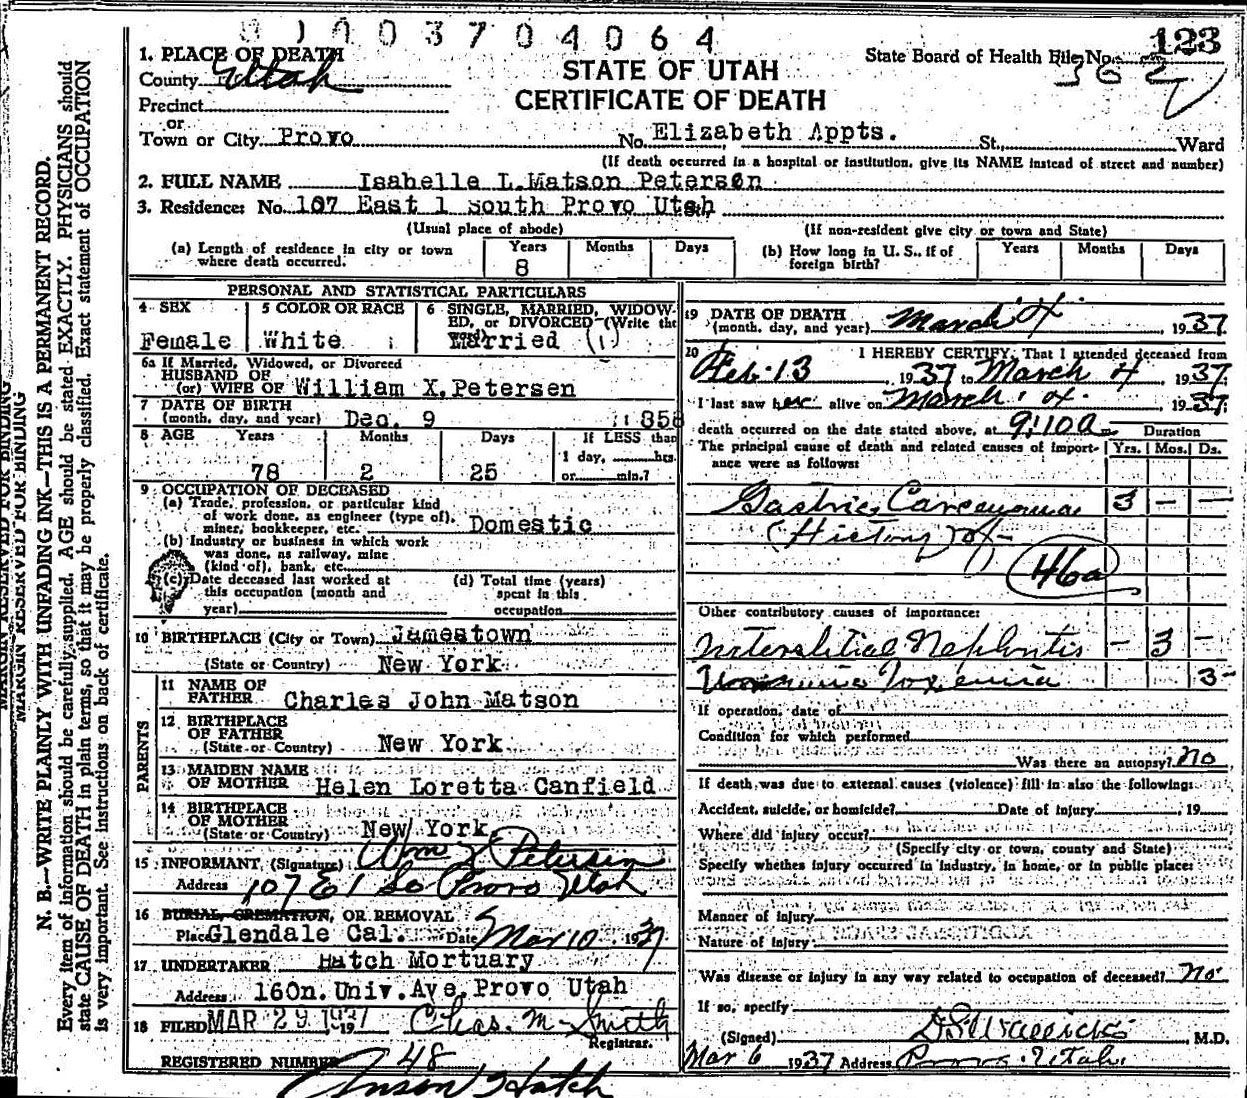 01003704064
123
1. PLACE OF DEATH
County Utah
State Board of Health File No. 362
STATE OF UTAH
CERTIFICATE OF DEATH
Precinct
or
Town or City Provo No. Elizabeth Appts. St., Ward
(If death occurred in a hospital or institution, give its NAME instead of street and number)
2. FULL NAME Isabelle L.Matson Petersen
3. Residence: No. 107 East 1 South Provo Utah
(Usual place of abode) (If non-resident give city or town and State)
(a) Length of residence in city or town where death occurred. Years 8 Months Days
(b) How long in U. S., if of foreign birth? Years Months Days
PERSONAL AND STATISTICAL PARTICULARS
4 SEX Female
5 COLOR OR RACE White
6 SINGLE, MARRIED, WIDOWED, or DIVORCED (Write the Married
6a If Married, Widowed, or Divorced
HUSBAND OF
(or) WIFE OF William X.Petersen
7 DATE OF BIRTH
(month, day, and year) Dec. 9 1858
8 AGE Years 78 Months 2 Days 25
If LESS than
1 day, hrs.
or min.?
9 OCCUPATION OF DECEASED
(a) Trade, profession, or particular kind
of work done, as engineer (type of),
miner, bookkeeper, etc. Domestic
(b) Industry or business in which work
was done, as railway, mine
(kind of), bank, etc.
(c) Date deceased last worked at
this occupation (month and
year)
(d) Total time (years)
spent in this
occupation
10 BIRTHPLACE (City or Town) Jamestown
(State or Country) New York
PARENTS
11 NAME OF
FATHER Charles John Matson
12 BIRTHPLACE
OF FATHER
(State or Country) New York
13 MAIDEN NAME
OF MOTHER Helen Loretta Canfield
14 BIRTHPLACE
OF MOTHER
(State or Country) New York
15 INFORMANT (Signature) Wm X Petersen
Address 107 E 1 So Provo Utah
16 BURIAL, CREMATION, OR REMOVAL
Place Glendale Cal. Date Mar 10 1937
17 UNDERTAKER Hatch Mortuary
Address 160n. Univ. Ave. Provo Utah
18 FILED MAR 29 1937 Chas. M. Smith
Registrar.
REGISTERED NUMBER 48
Anson Hatch
19 DATE OF DEATH
(month, day, and year) March 4 1937
20 I HEREBY CERTIFY, That I attended deceased from
Feb. 13, 1937 to March 4 1937
I last saw her alive on March 4. 1937
death occurred on the date stated above, at 9:10a m
Duration
The principal cause of death and related causes of importance were as follows: Yrs. Mos. Ds.
Gastric Carcinoma 3 - -
(History of-
46a
Other contributory causes of importance:
Nephritis - 3 -
Toxemia 3-
If operation, date of
Condition for which performed
Was there an autopsy? No
If death was due to external causes (violence) fill in also the following:
Accident, suicide, or homicide? Date of injury 19
Where did injury occur?
(Specify city or town, county and State)
Specify whether injury occurred in industry, in home, or in public place:
Manner of injury
Nature of injury
Was disease or injury in any way related to occupation of deceased? No
If so, specify
(Signed) M.D.
Mar 6 1937 Address Provo Utah.
MARGIN RESERVED FOR BINDING
MARGIN RESERVED FOR BINDING
N. B.—WRITE PLAINLY WITH UNFADING INK—THIS IS A PERMANENT RECORD.
Every item of information should be carefully supplied. AGE should be stated EXACTLY. PHYSICIANS should
state CAUSE OF DEATH in plain terms, so that it may be properly classified. Exact statement of OCCUPATION
is very important. See instructions on back of certificate.